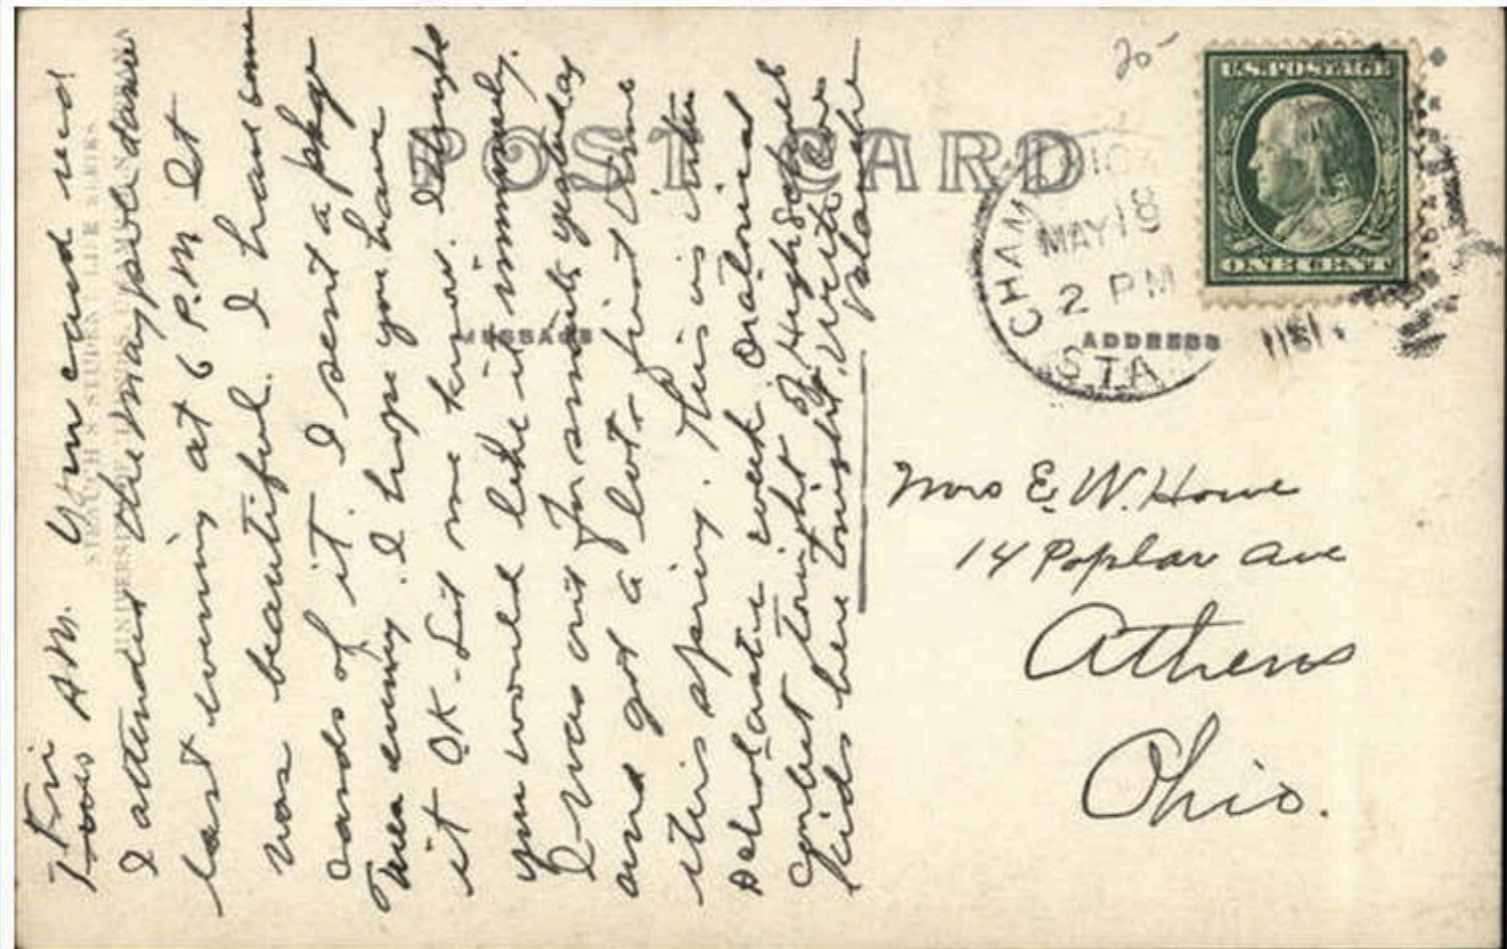 POST CARD
MESSAGE
ADDRESS
20-
U.S. POSTAGE
ONE CENT
CHAM
MAY 18
2 PM
STA
Fri
A.M. Your card rec'd
I attended the May pole dance
last evening at 6 P.M It
was beautiful. I have some
cards of it. I sent a pkge
evening. I hope you have
it O.K. Let me know. I thought
you would like it immensely.
I was out for yesterday
and got a lot, first time
this spring. This is inter
scholastic week. Oratorical
contest tonight by High School
kids here tonight. Write
Blanche
Mrs E. W. Howe
14 Poplar Ave
Athens
Ohio.